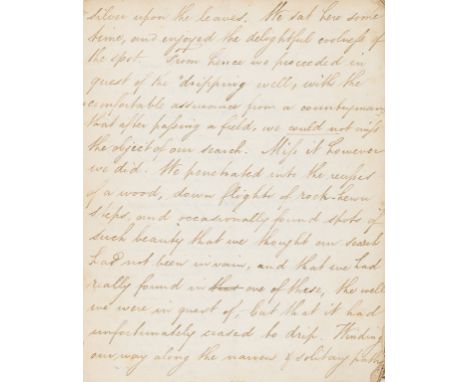 silver upon the leaves. We sat here some
time, and enjoyed the delightful coolness of
the spot. From hence we proceeded in
quest of the "dripping well, with the
comfortable assurance from a countryman,
that after passing a field, we could not miss
the object of our search. Miss it however
we did. We penetrated into the recesses
of a wood, down flights of rock-hewn
steps, and occasionally found spots of
such beauty that we thought our search
had not been in vain, and that we had
really found in that one of these, the well
we were in quest of,- but that it had
unfortunately ceased to drip. Winding
our way along the narrow & solitary path